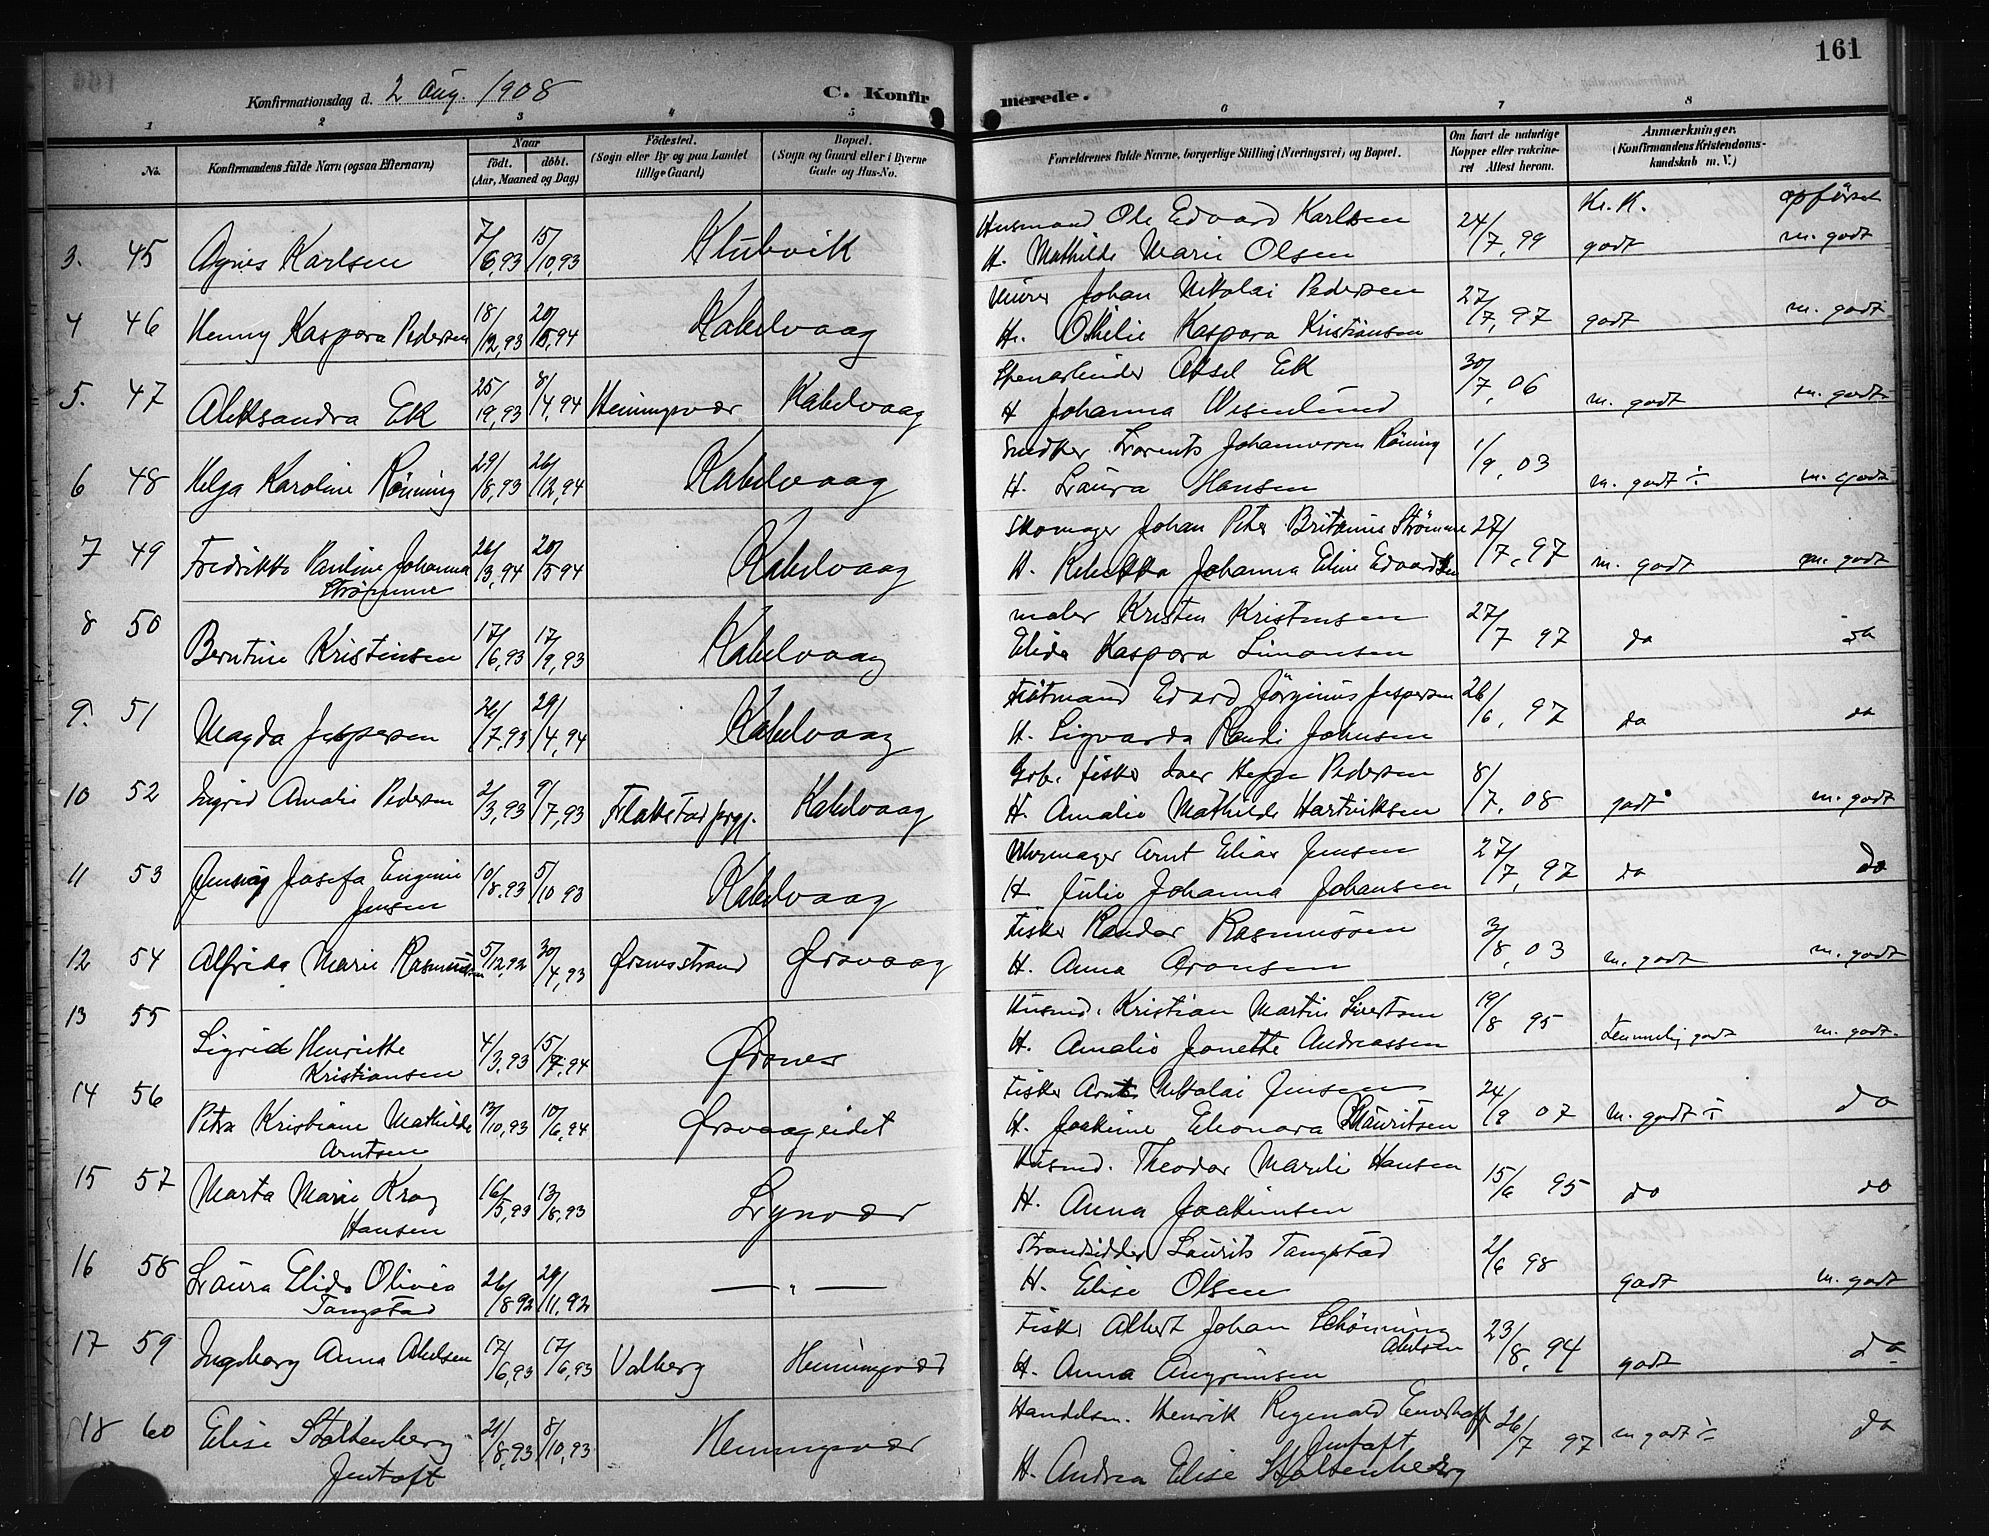 161
Konfirmationsdag d. 2 Aug. 1908
C. Konfirmerede.
1 2 3 4 5 6 7 8
No. Konfirmandens fulde Navn (ogsaa Efternavn) Naar født. døbt. (Aar, Maaned og Dag) Fødested. (Sogn eller By og paa Landet tillige Gaard) Bopæl. (Sogn og Gaard eller i Byerne Gade og Hus-No.
Forældrenes fulde Navne, borgerlige Stilling (Næringsvei) og Bopæl. Om havt de naturlige Kopper eller vakcineret Attest herom. Anmærkninger. (Konfirmandens Kristendomskundskab m. V.)
Kr. K. opførsel
3. 45 Agnes Karlsen 7/6,93 15/10,93 Klubvik Husmand Ole Edvard Karlsen 24/7,99 godt m. godt
H. Mathilde Marie Olsen
4 46 Henny Kaspara Pedersen 18/12,93 20/5,94 Kabelvaag Murer Johan Nikolai Pedersen 27/7,97 godt m. godt
H. Othilie Kaspara Kristiansen
5. 47 Aleksandra Ek 8/4,94 Henningsvær Kabelvaag Aksel Ek 30/7,06 m. godt m. godt
H Johanna
6 48 Helga Karoline Rönning 29/8,93 26/12,94 Kabelvaag Snedker Lorents Johannessen Röning 1/9,03 m. godt ÷ m. godt
H. Laura Hansen
7 49 Fredrikke Pauline Johanna 3,94 20/5 94 Kabelvaag Skomager Johan Peter Strömme 27/7,97 m. godt m. godt
Strömme H. Rebekka Johanna Eline Edvardsen
8 50 Berntine Kristensen 17/6,93 17/9,93 Kabelvaag maler Kristen Kristensen 27/7 97 do do
Elida Kaspara Simonsen
9. 51 Magda Jespersen 26/7,93 29/4,94 Kabelvaag Edvard Jörginus Jespersen 26/6,97 do do
H. Sigvarda Randi Johnsen
10 52 Ingrid Amalie Pedersen 2/3,93 9/7,93 Kabelvaag Grb. fisker Iver Pedersen 8/7,08 godt m. godt
H. Amalie Mathilde Hartviksen
11 53 Josefa Eugenie 10/8,93 5/10 93 Kabelvaag Uhrmager Arnt Elias Jensen 27/7,97 do do
Jensen H Julie Johanna Johansen
12 54 Alfrida Marie Rasmussen 5/12,92 30/4,93 Ørsnesstrand Ørsvaag Fisker Randor Rasmussen 3/8,03 m. godt m. godt
H. Anna Aronsen
13 55 Sigrid Henriette 4/3,93 15/7,94 Ørsnes Husmd. Kristian Martin Sivertsen 19/8 95 temmelig godt m. godt.
Kristiansen H. Amalie Jonette Andreassen
14 56 Petra Kristiane Mathilde 13/10,93 10/6,94 Ørsvaageidet Fisker Arnt Nikolai Jensen 07 m. godt ÷ do
Arntsen H. Joakime Eleonora Lauritsen
15 57 Marta Marie Krog 16/5,93 13/8,93 Lyngvær Husmd. Theodor Hansen 15/6 95 do do
Hansen H. Anna Joakimsen
16 58 Laura Elida Olivia 26/8 92 29/11,92 — „ — Strandsidder Laurits Tangstad 2/6 98 godt m. godt
Tangstad H. Elise Olsen
17 59 Ingeborg Anna Abelsen 17/6,93 Valberg Henningsvær Fisker Albert Johan Schönning 23/8,94 godt do
Abelsen
H. Anna Angrimsen
18 60 Elise Stoltenberg 21/8,93 8/10,93 Henningsvær Handelsm. Henrik 26/7 97 m godt ÷ do
Jentoft Jentoft
H. Andrea Elise Stoltenberg